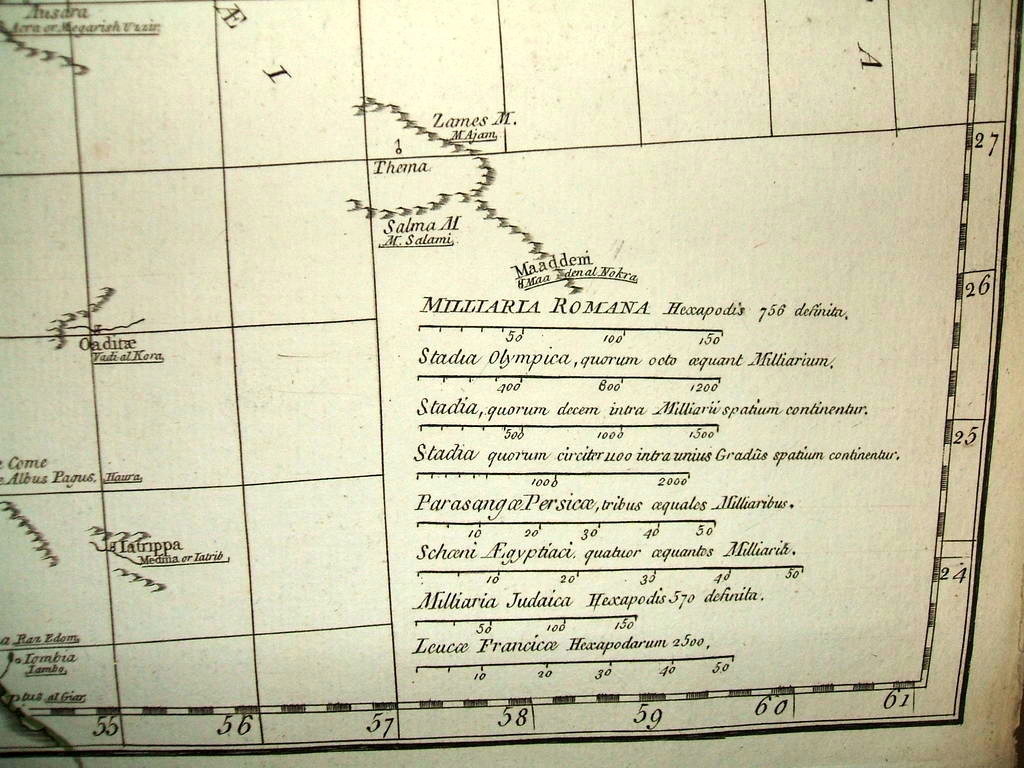 Ausara
Acra or Megarish Uzzir.
Æ
I
A
Zames M.
M. Ajam.
Thema
27
Salma M
M. Salami.
Maaddem
Maa den al Nokra
26
MILLIARIA ROMANA Hexapodis 756 definita.
50 100 150
Oaditæ
Vadi al Kora
Stadia Olympica, quorum octo æquant Milliarium.
400 800 1200
Stadia, quorum decem intra Milliarii spatium continentur.
500 1000 1500
25
Stadia quorum circiter 1100 intra unius Gradûs spatium continentur.
1000 2000
Come
Albus Pagus. Haura.
Parasangæ Persicæ, tribus æquales Milliaribus.
10 20 30 40 50
Iatrippa
Medina or Iatrib.
Schœni Ægyptiaci, quatuor æquantes Milliaria.
10 20 30 40 50
24
Milliaria Judaica Hexapodis 570 definita.
50 100 150
Raz Edom.
Iombia
Iambo.
Leucæ Francicæ Hexapodarum 2500.
10 20 30 40 50
ptus al Giar.
55 56 57 58 59 60 61